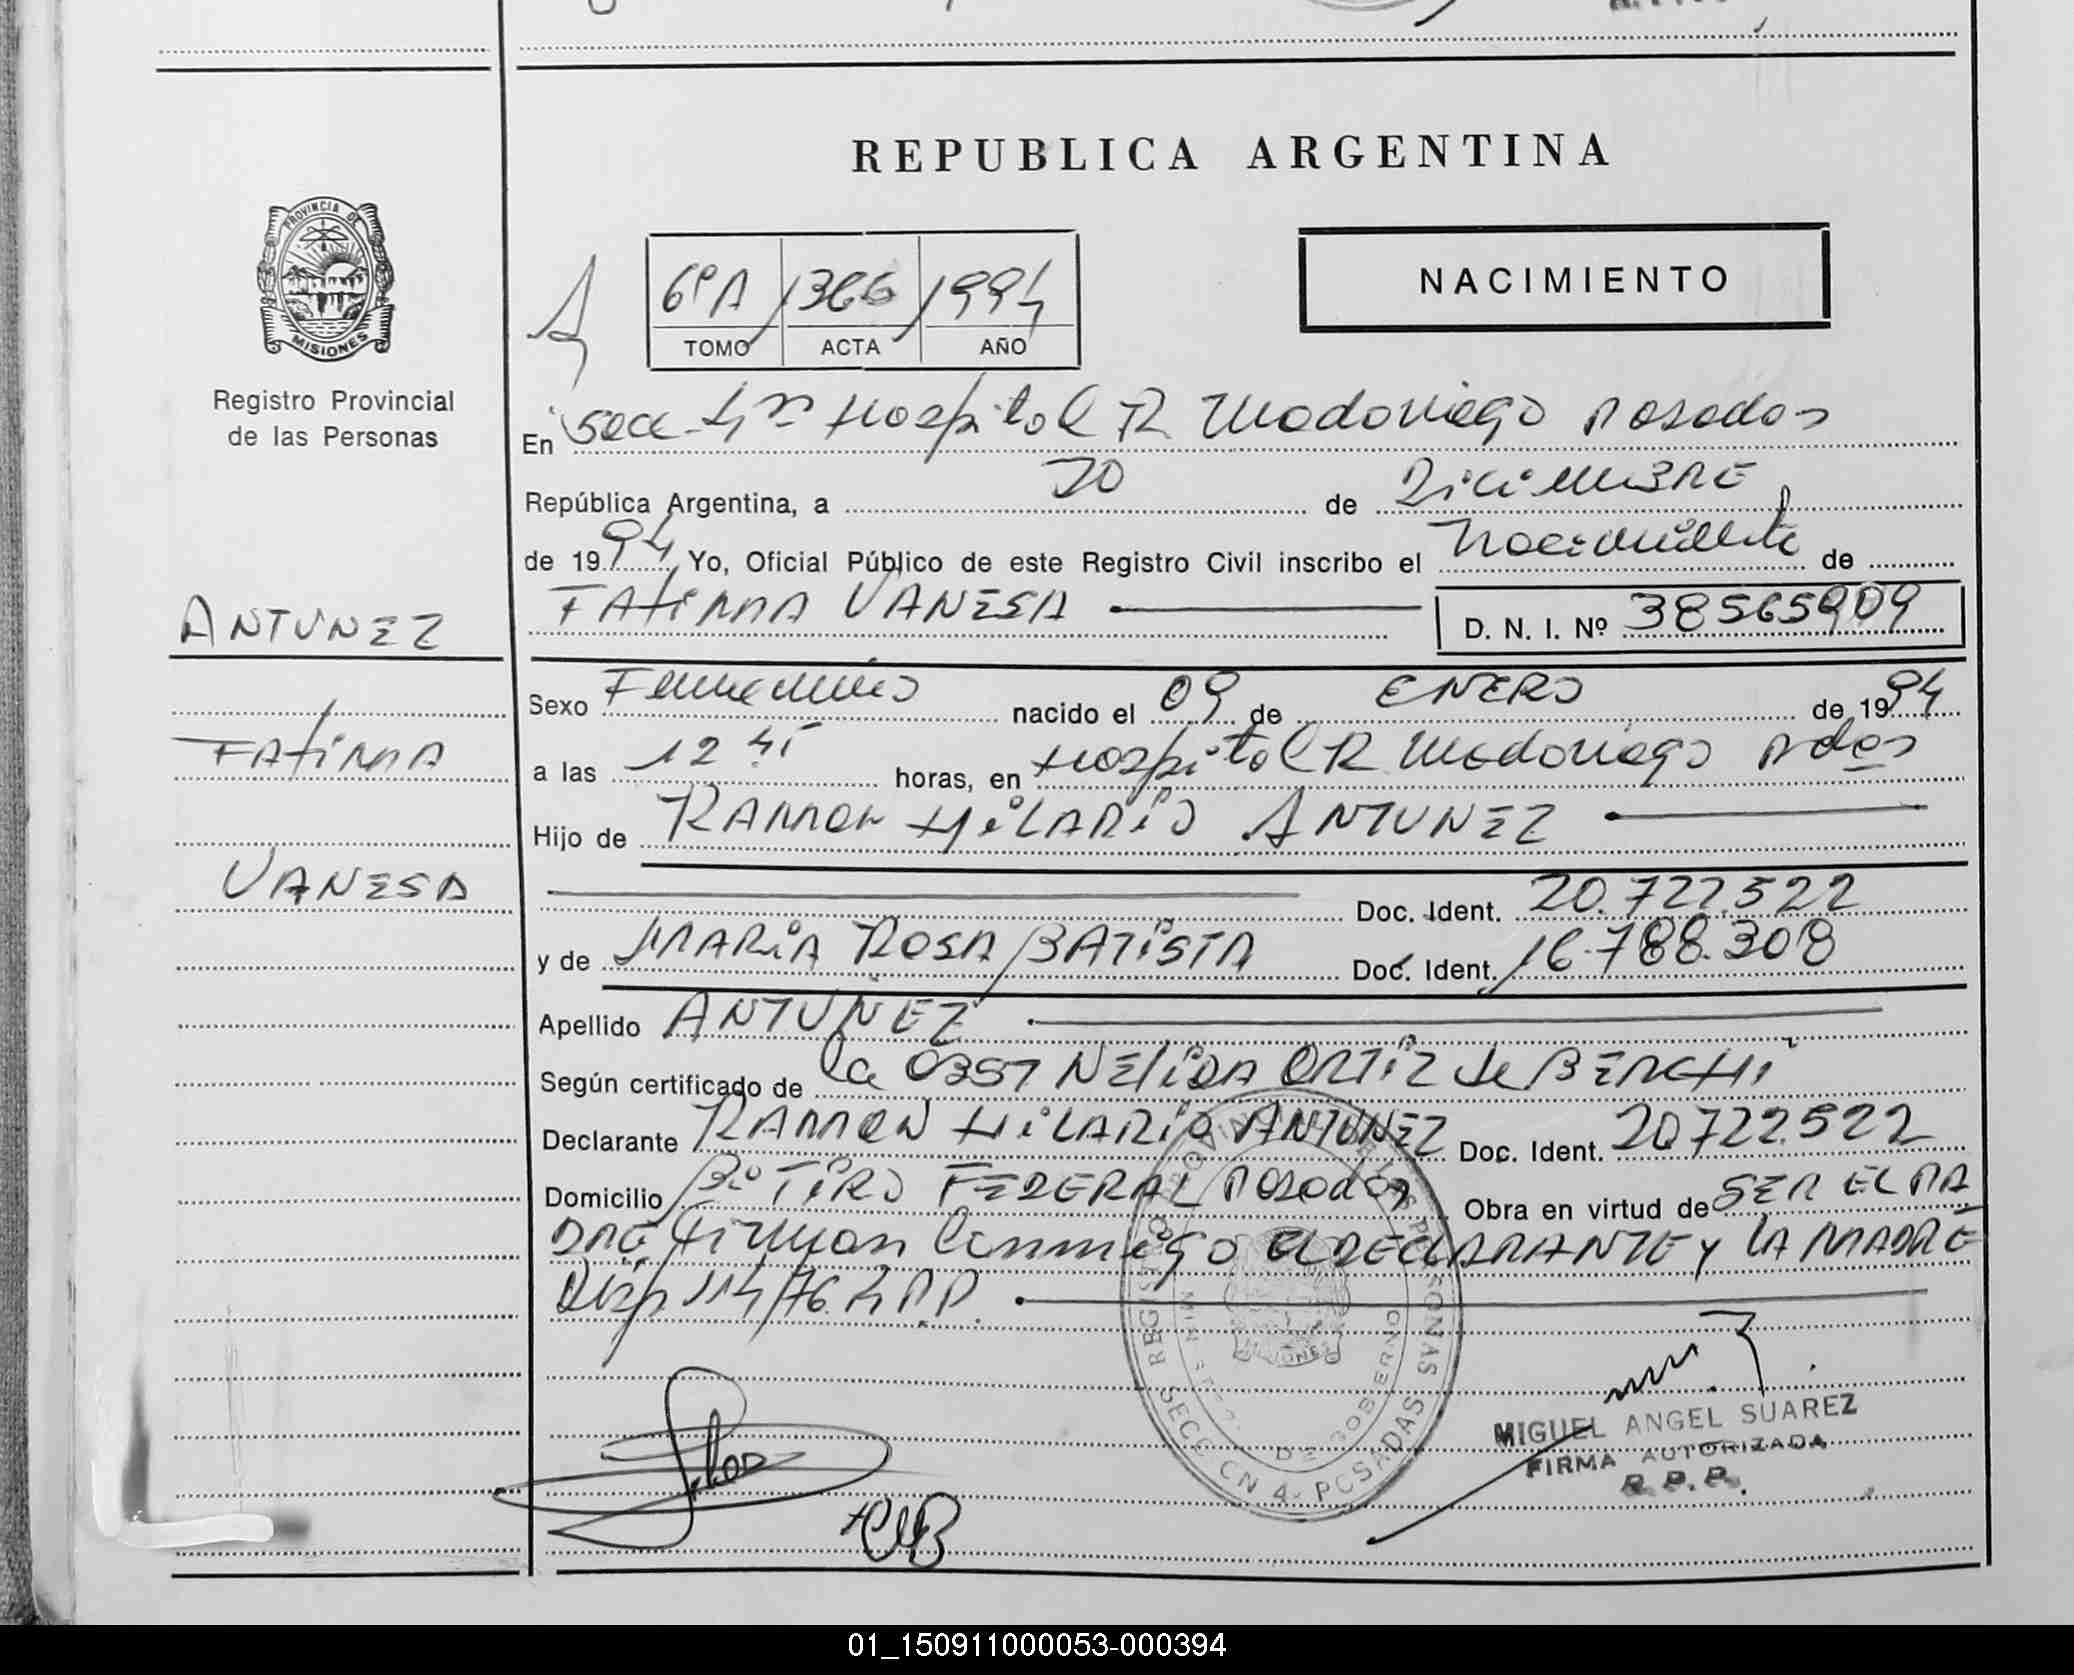 REPUBLICA ARGENTINA
PROVINCIA DE
MISIONES
Registro Provincial
de las Personas
6º A / 366 / 1994
TOMO ACTA AÑO
NACIMIENTO
En Secc. 4ª Hospital R Madariaga Posadas
República Argentina, a 20 de DiciemBRE
de 1994 Yo, Oficial Público de este Registro Civil inscribo el Nacimiento de
FATiMA VANESA
D. N. I. Nº 38565909
ANTUNEZ
FATiMA
VANESA
Sexo Femenino nacido el 09 de ENERO de 1994
a las 12 45 horas, en Hospital R Madariaga Pdas
Hijo de RAMON HiLARiO ANTUNEZ
Doc. Ident. 20.722.522
y de MARiA ROSA BATiSTA Doc. Ident. 16.788.308
Apellido ANTUNEZ
Según certificado de la OBST NEliDA ORTiZ de BERCHi
Declarante RAMON HiLARiO ANTUNEZ Doc. Ident. 20722.522
Domicilio Bº TiRO FEDERAL Posadas Obra en virtud de SER EL PA
DRE, firman Conmigo El DECLARANTE Y LA MADRE
Disp 114/76.
REGISTRO PROVINCIAL DE LAS PERSONAS
DE GOBERNO
SECC CN 4- POSADAS
MIGUEL ANGEL SUAREZ
FIRMA AUTORIZADA
R. P. P.
01_150911000053-000394